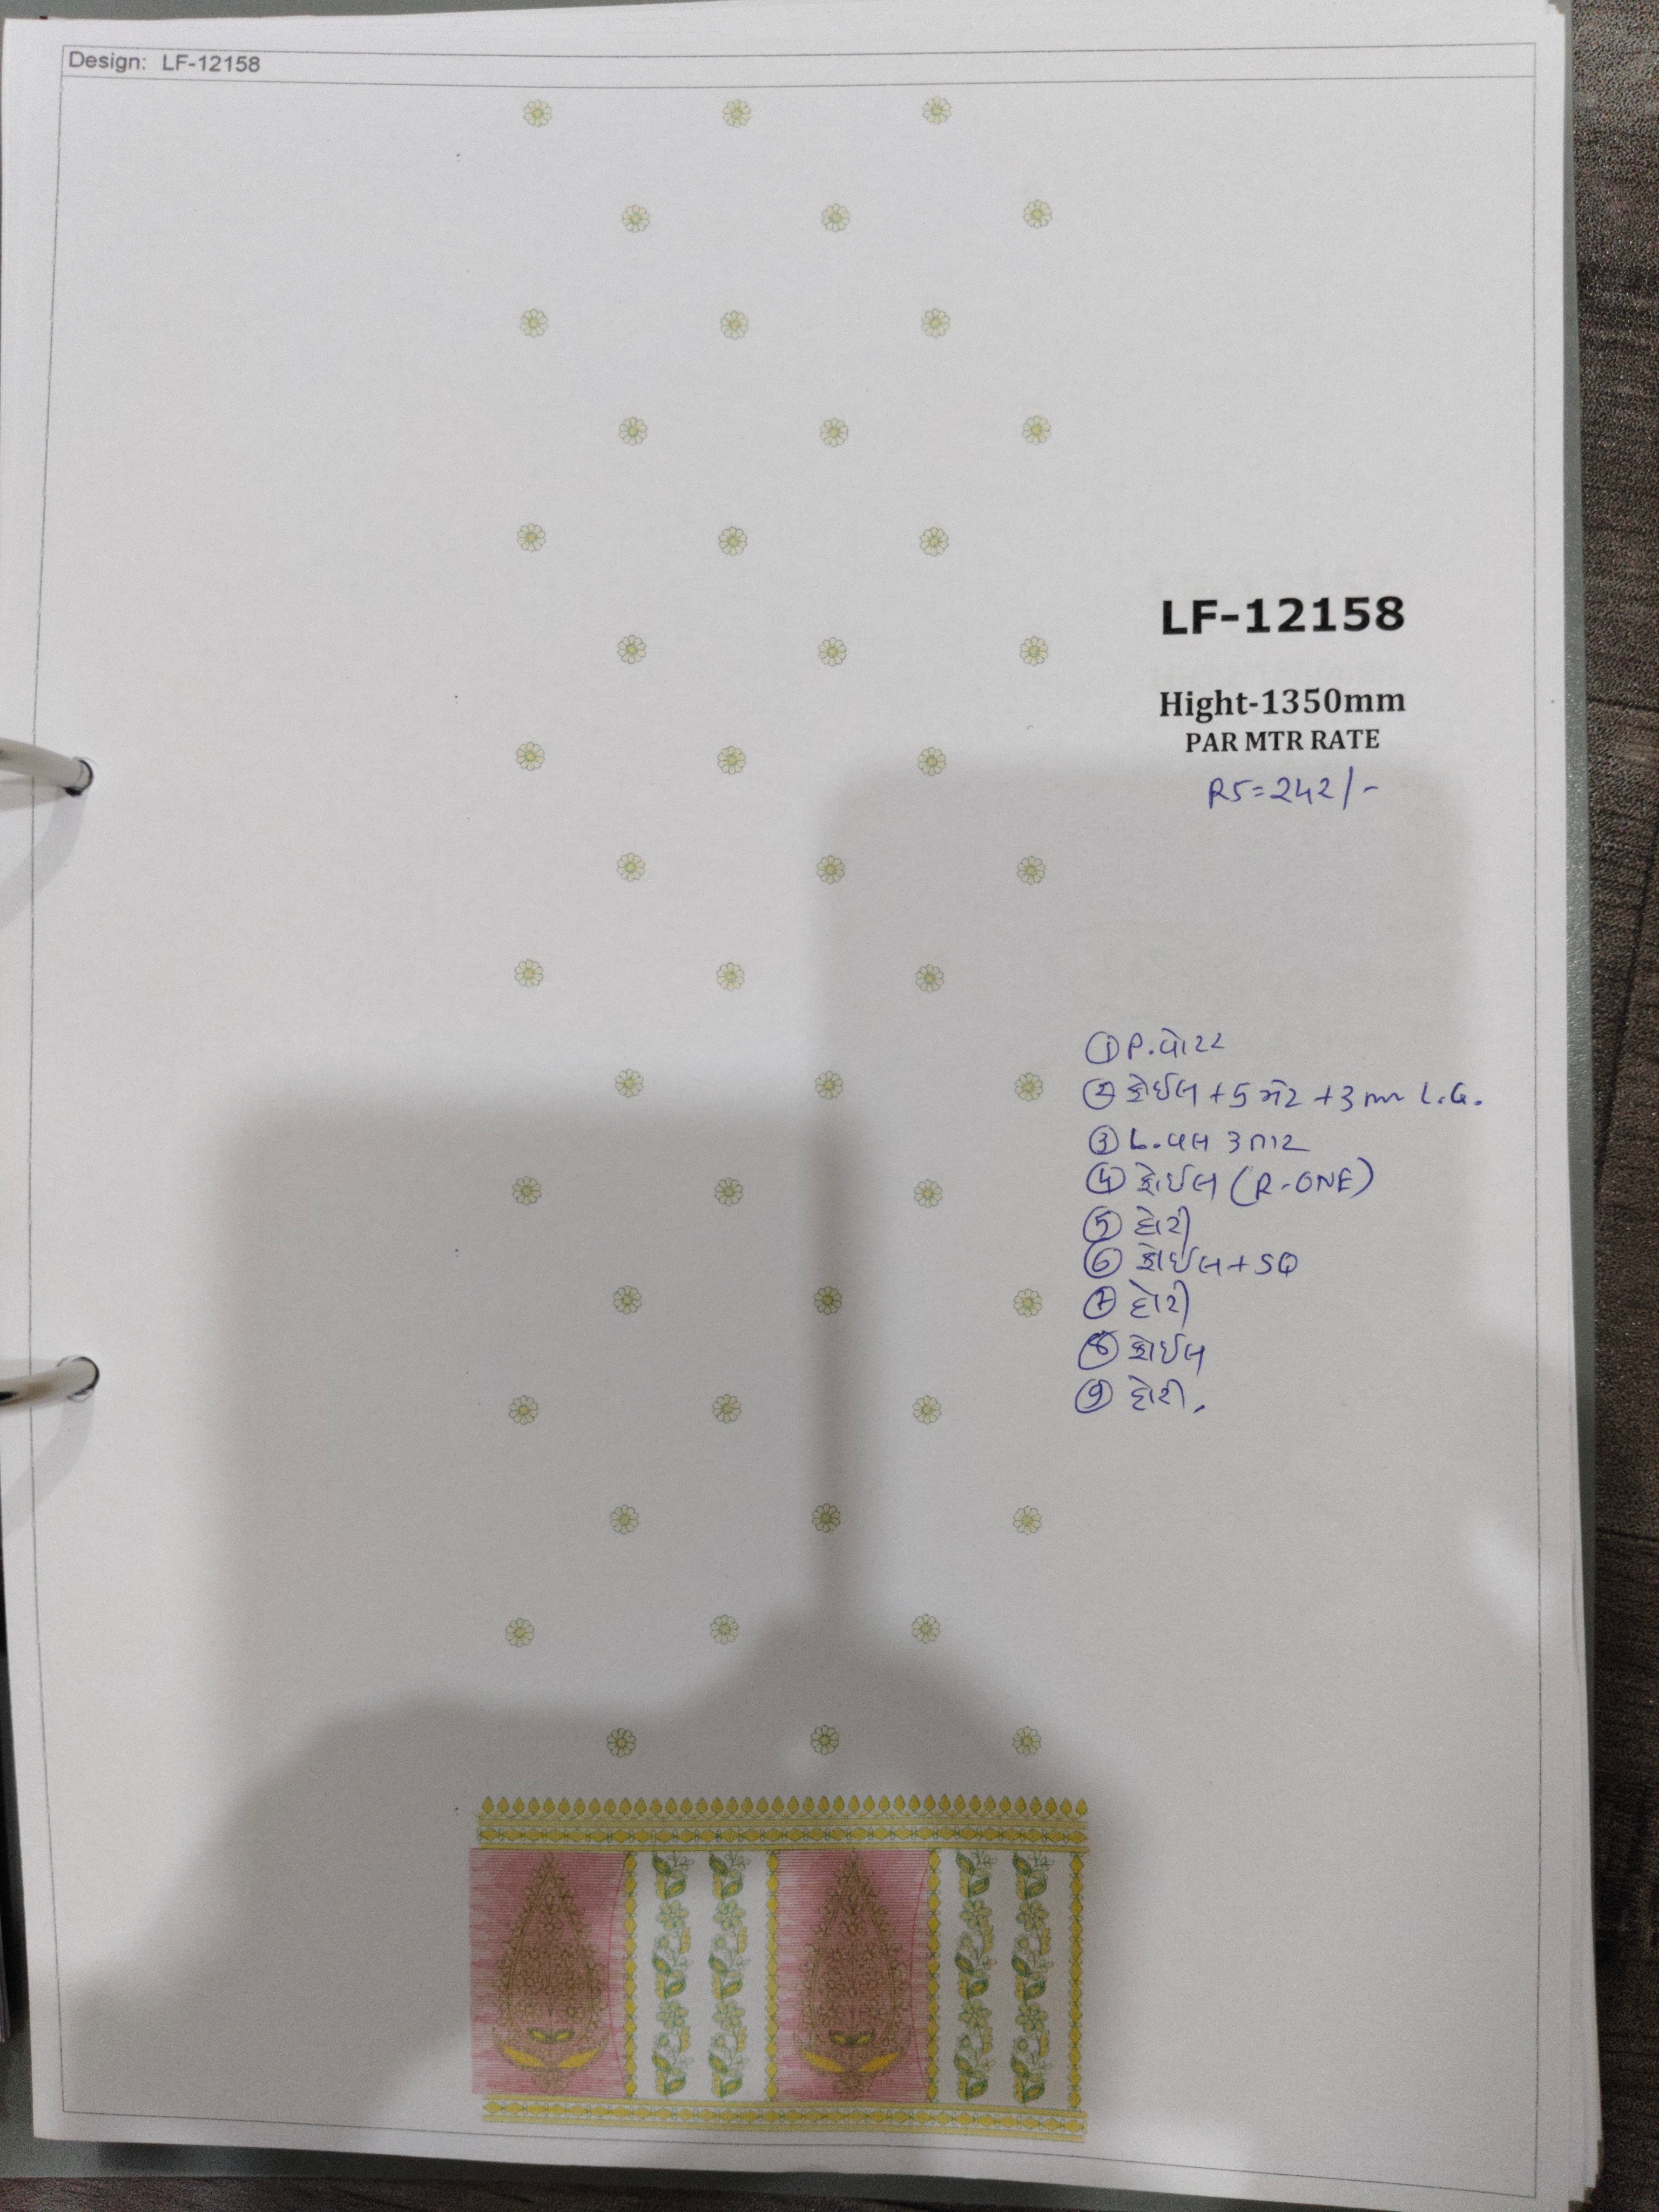 Design: LF-12158
LF-12158
Hight-1350mm
PAR MTR RATE
RS=242/-
① P.વોટર
② ફોઈલ + 5 મેટ + 3mm L.G.
③ L. પલ 3 તાર
④ ફોઈલ (R-ONE)
⑤ દોરી
⑥ ફોઈલ + SQ
⑦ દોરી
⑧ ફોઈલ
⑨ દોરી.